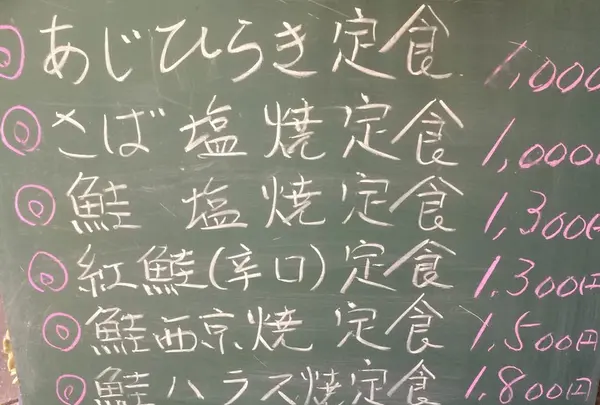 ◎あじひらき定食 1,000
◎さば塩焼定食 1,000
◎鮭塩焼定食 1,300円
◎紅鮭(辛口)定食 1,300円
◎鮭西京焼定食 1,500円
◎鮭ハラス焼定食 1,800円